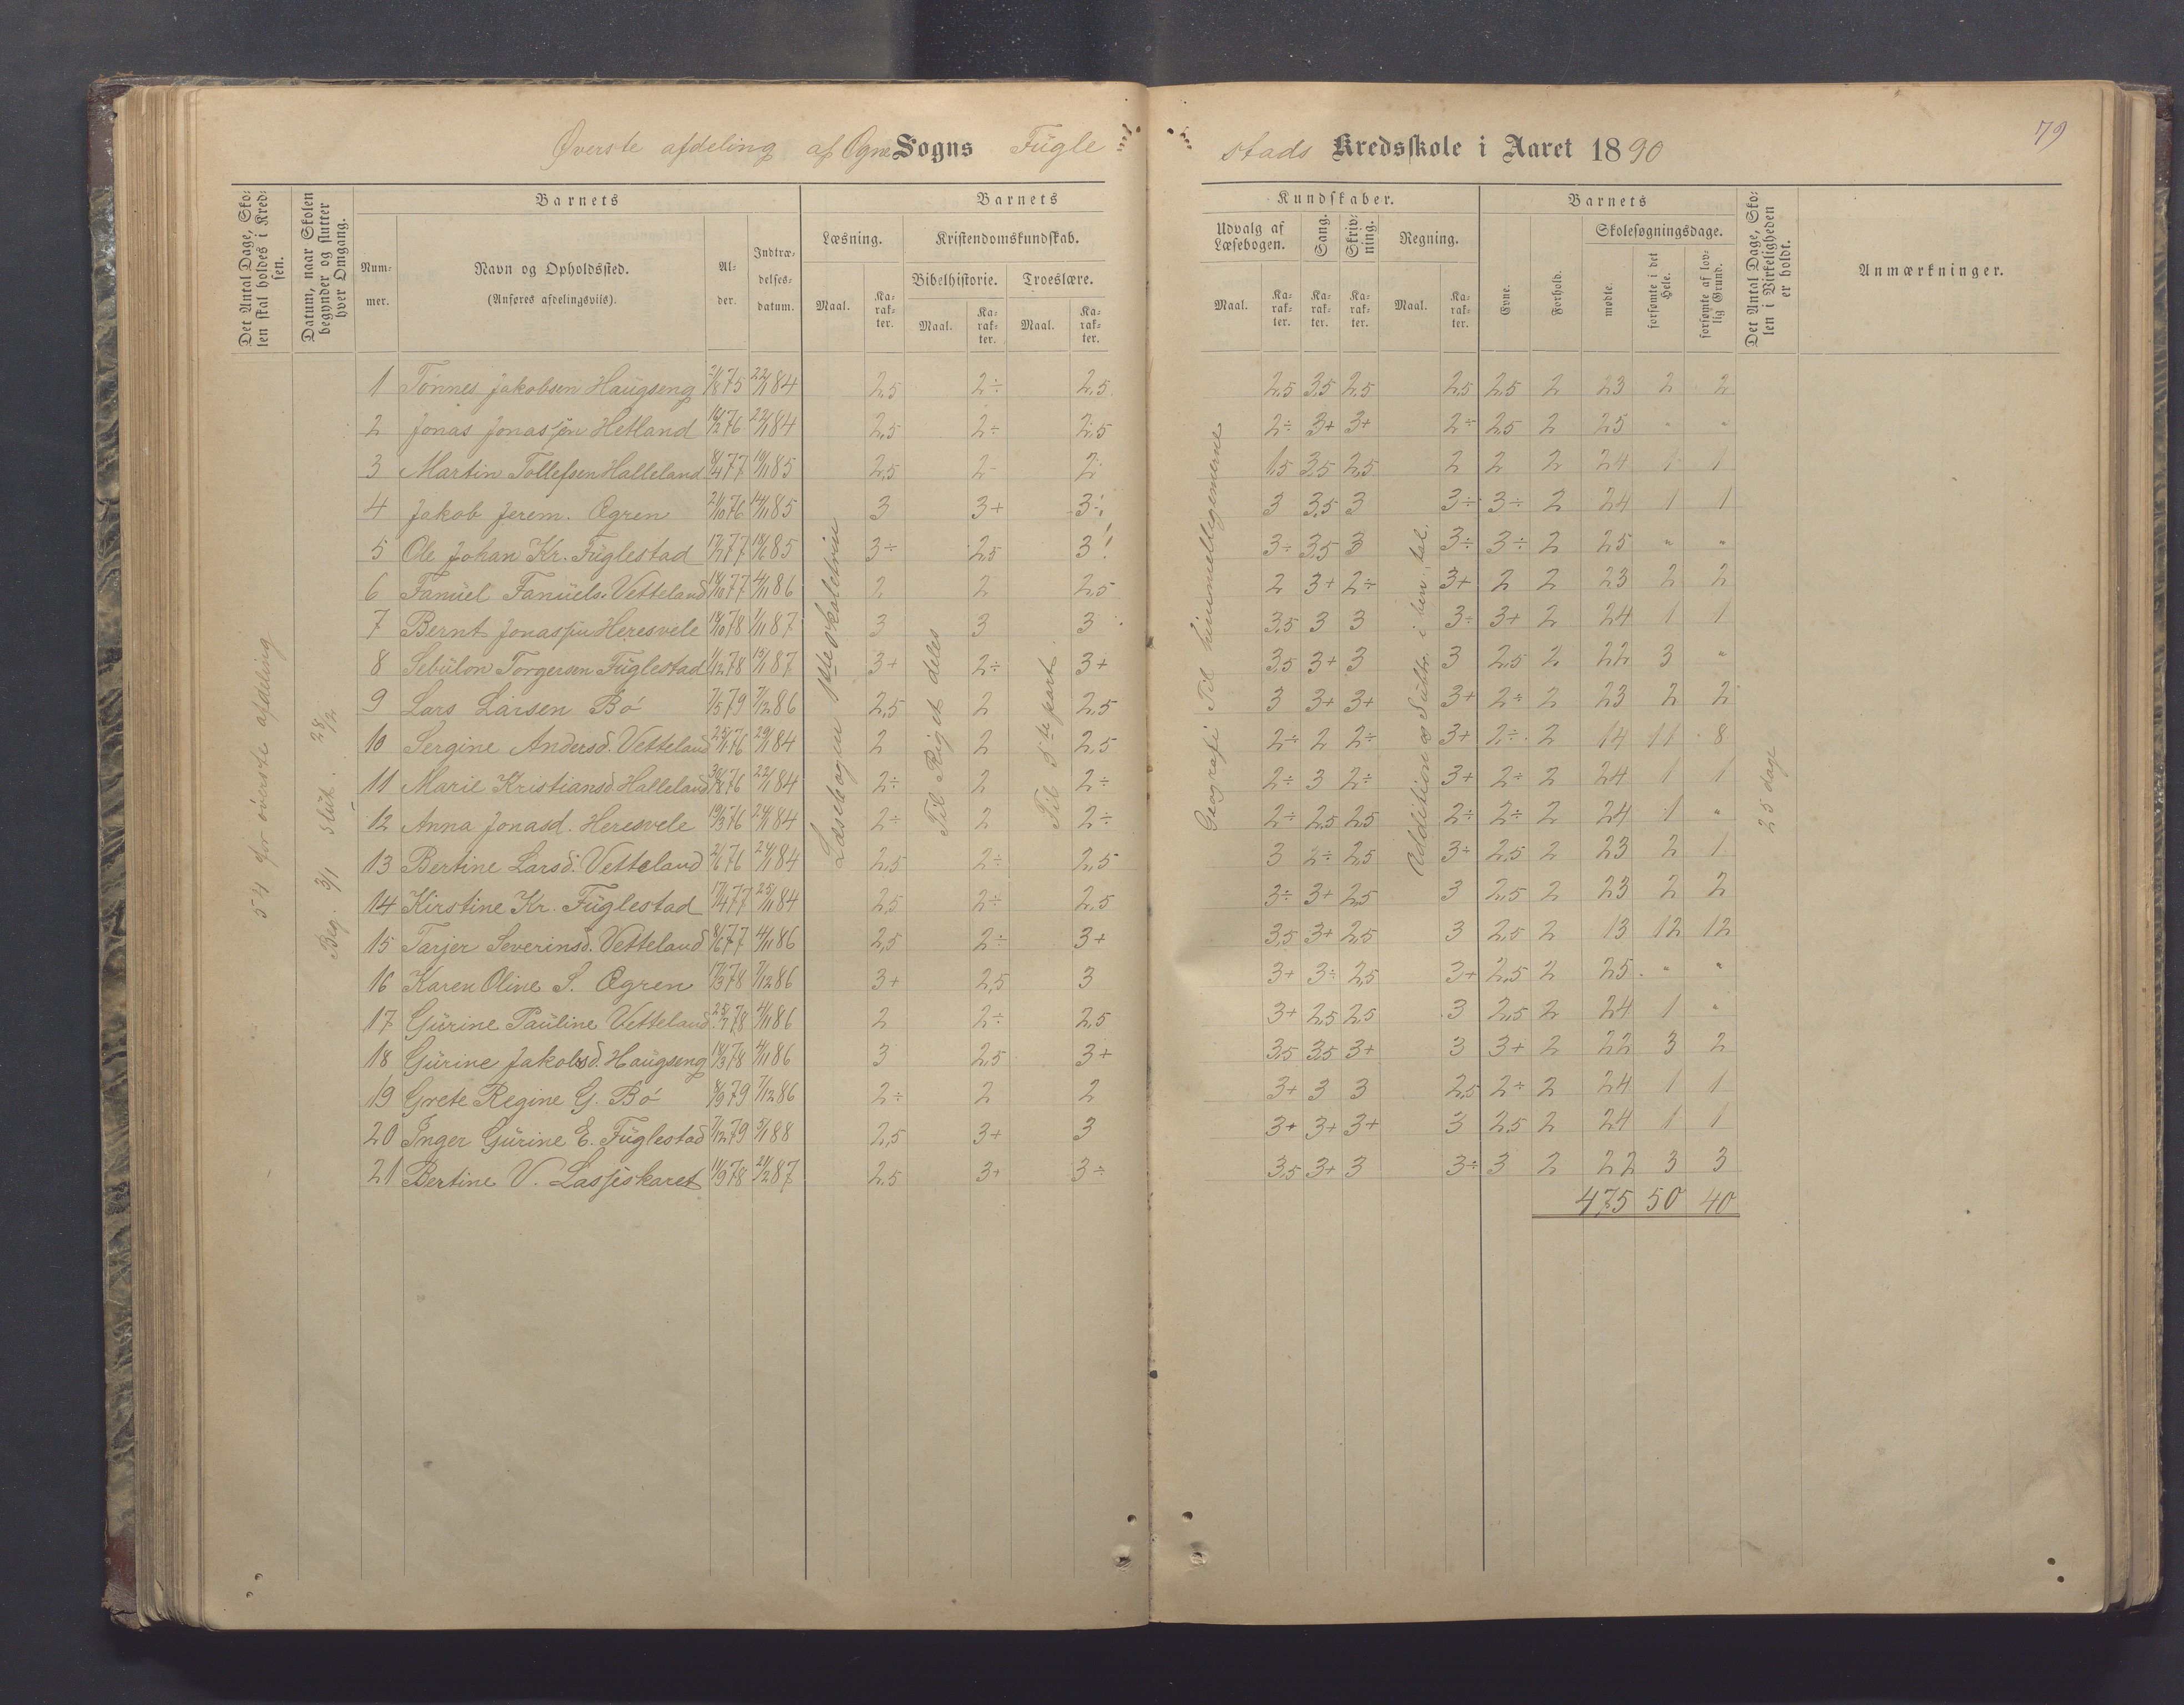 Øverste afdeling af Ogne Sogns Fügle
stads Kredsskole i Aaret 1890
79
Det Antal Dage, Skolen skal holdes i Kredsen.
Datum, naar Skolen begynder og slutter hver Omgang.
Barnets
Nummer.
Navn og Opholdssted.
(Anføres afdelingsviis).
Alder.
Indtrædelsesdatum.
Barnets
Læsning.
Kristendomskundskab.
Bibelhistorie.
Troeslære.
Maal.
Karakter.
Maal.
Karakter.
Maal.
Karakter.
Kundskaber.
Udvalg af Læsebogen.
Sang.
Skrivning.
Regning.
Maal.
Karakter.
Karakter.
Karakter.
Maal.
Karakter.
Barnets
Evne.
Forhold.
Skolesøgningsdage.
mødte.
forsømte i det Hele.
forsømte af lovlig Grund.
Det Antal Dage, Skolen i Virkeligheden er holdt.
Anmærkninger.
54 for øverste afdeling
Beg. 3/1 slüt. 28/2
Læsebogen 1ste skoletrin
Til Riget deles
Til 5te part
Geografi Til himmellegemerne
Addition og Subtr. i ben. tal.
25 dage
1 Tönnes Jakobsen Haügseng 75 22/1 84 2,5 2÷ 2,5 2,5 3,5 2,5 2,5 2,5 2 23 2 2
2 Jonas Jonassen Hetland 16/12 76 22/1 84 2,5 2÷ 2,5 2÷ 3+ 3+ 2÷ 2,5 2 25 " "
3 Martin Tollefsen Halleland 8/4 77 85 2,5 2- 2 1,5 3,5 2,5 2 2 2 24 1 1
4 Jakob Jerem. Ægren 21/10 76 14/11 85 3 3+ 3÷ 3 3,5 3 3÷ 3÷ 2 24 1 1
5 Ole Johan Kr. Füglestad 77 85 3÷ 2,5 3 3÷ 3,5 3 3÷ 3÷ 2 25 " "
6 Fanüel Fanüels. Vetteland 77 4/11 86 2 2 2,5 2 3+ 2÷ 3+ 2 2 23 2 2
7 Bernt Jonassen Heresvele 78 1/11 87 3 3 3 3,5 3 3 3÷ 3+ 2 24 1 1
8 Sebülon Torgersen Füglestad 1/12 78 87 3+ 2÷ 3+ 3,5 3+ 3 3 2,5 2 22 3 "
9 Lars Larsen Bö 1/5 79 7/12 86 2,5 2 2,5 3 3+ 3+ 3+ 2÷ 2 23 2 2
10 Sergine Andersd. Vetteland 76 29/1 84 2 2 2,5 2÷ 2 2÷ 3+ 2÷ 2 14 11 8
11 Marie Kristiansd Halleland 76 22/1 84 2÷ 2 2÷ 2÷ 3 2÷ 3+ 2÷ 2 24 1 1
12 Anna Jonasd. Heresvele 19/3 76 84 2÷ 2 2÷ 2÷ 2,5 2,5 2÷ 2÷ 2 24 1 "
13 Bertine Larsd. Vetteland 76 84 2,5 2÷ 2,5 3 2÷ 2,5 3÷ 2,5 2 23 2 1
14 Kirstine Kr. Füglestad 17/4 77 25/11 84 2,5 2÷ 2,5 3÷ 3+ 2,5 3 2,5 2 23 2 2
15 Tarjer Severinsd. Vetteland 77 4/11 86 2,5 2÷ 3+ 3,5 3+ 2,5 3 2,5 2 13 12 12
16 Karen Oline S. Ægren 78 7/12 86 3+ 2,5 3 3+ 3÷ 2,5 3+ 2,5 2 25 " "
17 Gürine Paüline Vetteland 25/7 78 4/11 86 2 2÷ 2,5 3+ 2,5 2,5 3 2,5 2 24 1 "
18 Gürine Jakobsd. Haügseng 78 4/11 86 3 2,5 3+ 3,5 3,5 3+ 3 3+ 2 22 3 2
19 Grete Regine G. Bö 8/9 79 7/12 86 2÷ 2 2 3+ 3 3 2,5 2÷ 2 24 1 1
20 Inger Gürine E. Füglestad 7/12 79 5/1 88 2,5 3+ 3 3+ 3+ 3+ 3 2,5 2 24 1 1
21 Bertine V. Lasseskaret 11/9 78 87 2,5 3+ 3÷ 3,5 3+ 3 3÷ 3 2 22 3 3
475 50 40